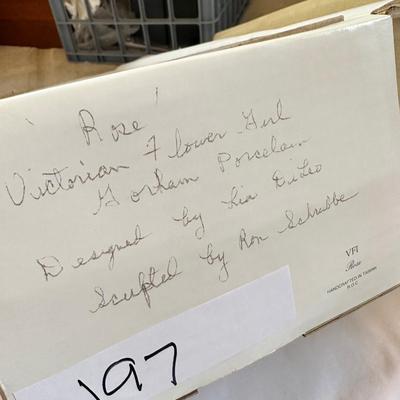 'Rose'
Victorian Flower Girl
Gorham Porcelain
Designed by Lia DiLeo
Sculpted by Ron Schrubbe
VFI
Rose
HANDCRAFTED IN TAIWAN
R.O.C.
197